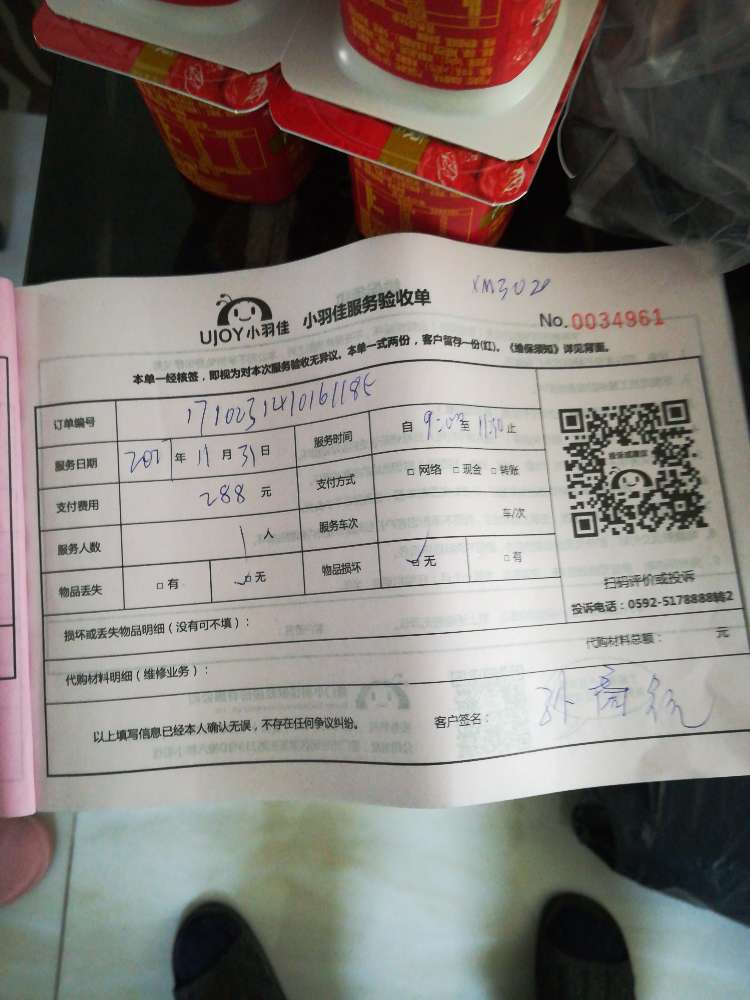 XM3020
UJOY小羽佳 小羽佳服务验收单
No.0034961
本单一经核签，即视为对本次服务验收无异议。本单一式两份，客户留存一份(红)。《维保须知》详见背面。
订单编号
服务日期 年 11 月 31 日 服务时间 自 9:00 至 11:30 止
支付费用 288 元 支付方式 □ 网络 □ 现金 □ 转账
服务人数 1 人 服务车次 车/次
物品丢失 □ 有 □ 无 物品损坏 □ 无 □ 有
扫码评价或投诉
投诉电话：0592-5178888转2
损坏或丢失物品明细（没有可不填）：
代购材料明细（维修业务）： 代购材料总额： 元
以上填写信息已经本人确认无误，不存在任何争议纠纷。 客户签名：